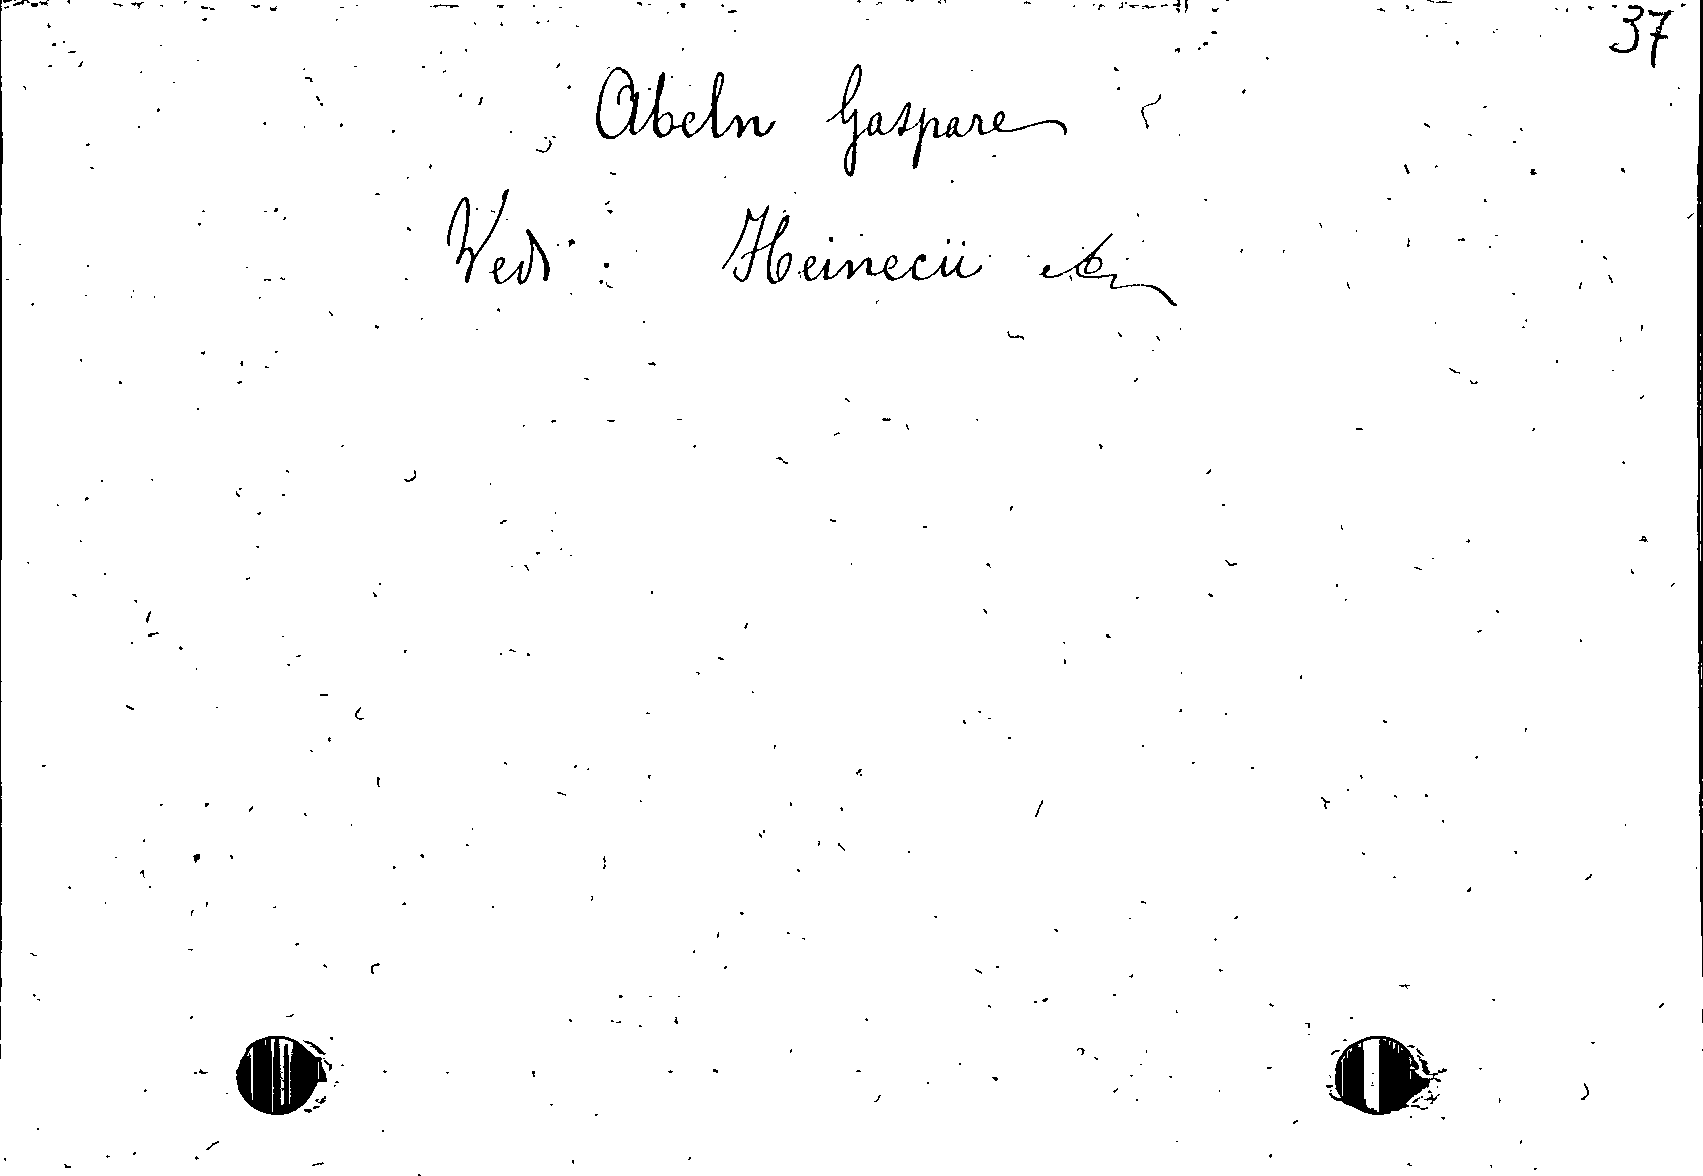 37
Abeln Gaspare
Vedi: Heinecii